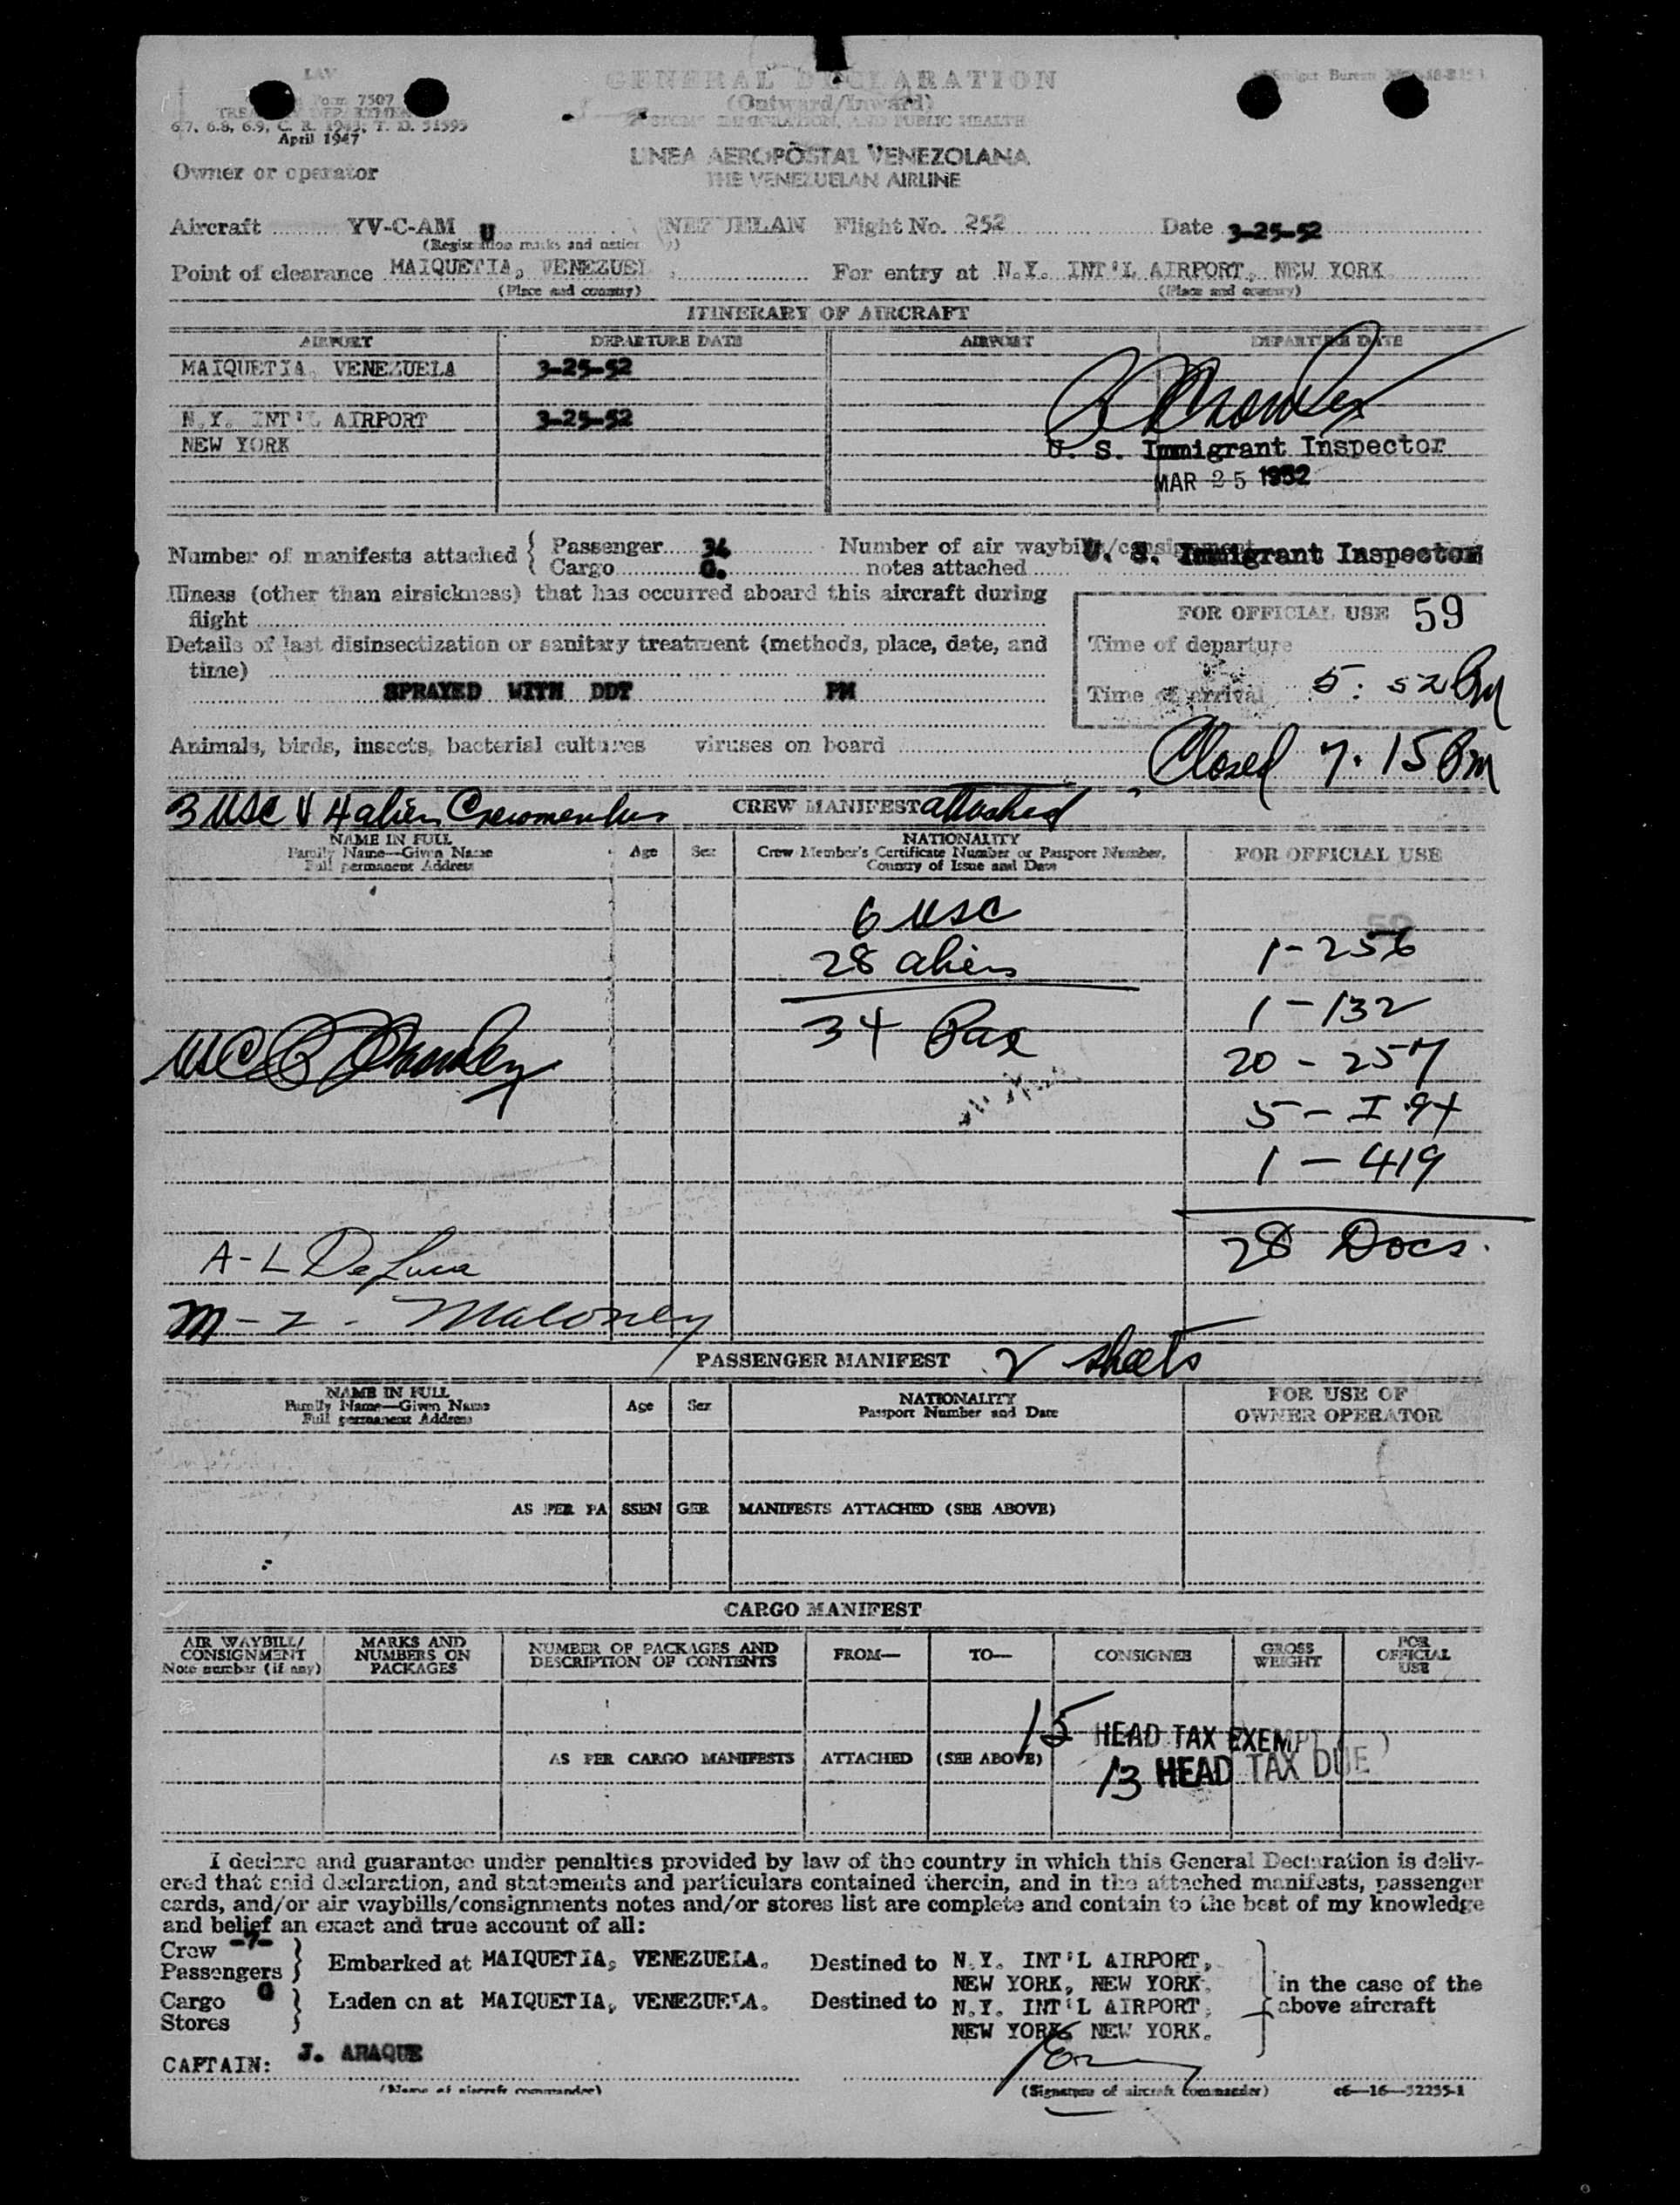 LAV
GENERAL DECLARATION
Form 7507
(Outward/Inward)
TREASURY DEPARTMENT
IMMIGRATION, AND PUBLIC HEALTH
6.7, 6.8, 6.9, C. R. 1943; T. D. 51595
April 1947
LINEA AEROPOSTAL VENEZOLANA
THE VENEZUELAN AIRLINE
Owner or operator
Aircraft YV-C-AM U Flight No. 252 Date 3-25-52
Point of clearance MAIQUETIA, For entry at N.Y. INT'L AIRPORT, NEW YORK
(Place and country) (Place and country)
ITINERARY OF AIRCRAFT
AIRPORT DEPARTURE DATE AIRPORT DEPARTURE DATE
MAIQUETIA, VENEZUELA 3-25-52
N.Y. INT'L AIRPORT 3-25-52
NEW YORK
U. S. Immigrant Inspector
MAR 25 1952
Number of manifests attached { Passenger 34 Number of air waybills/consignment
Cargo 0. notes attached
U. S. Immigrant Inspector
Illness (other than airsickness) that has occurred aboard this aircraft during
flight
FOR OFFICIAL USE 59
Details of last disinsectization or sanitary treatment (methods, place, date, and
time)
Time of departure
SPRAYED WITH DDT PM
Time of arrival 5:52 Pm
Animals, birds, insects, bacterial cultures viruses on board
Closed 7.15 Pm
3 USC & 4 alien Crewmembers CREW MANIFEST attached
NAME IN FULL
Family Name—Given Name
Full permanent Address
Age Sex
NATIONALITY
Crew Member's Certificate Number or Passport Number,
Country of Issue and Date
FOR OFFICIAL USE
6 USC
28 aliens
34 Pax
1 - 256
1 - 132
20 - 257
5 - I 94
1 - 419
28 Docs.
A-L De Luca
M-2. Maloney
PASSENGER MANIFEST 2 sheets
NAME IN FULL
Family Name—Given Name
Full permanent Address
Age Sex
NATIONALITY
Passport Number and Date
FOR USE OF
OWNER OPERATOR
AS PER PASSENGER MANIFESTS ATTACHED (SEE ABOVE)
CARGO MANIFEST
AIR WAYBILL/
CONSIGNMENT
Note number (if any)
MARKS AND
NUMBERS ON
PACKAGES
NUMBER OF PACKAGES AND
DESCRIPTION OF CONTENTS
FROM— TO— CONSIGNEE
GROSS
WEIGHT
FOR
OFFICIAL
USE
15 HEAD TAX EXEMPT ( )
AS PER CARGO MANIFESTS ATTACHED (SEE ABOVE)
13 HEAD TAX DUE
I declare and guarantee under penalties provided by law of the country in which this General Declaration is deliv-
ered that said declaration, and statements and particulars contained therein, and in the attached manifests, passenger
cards, and/or air waybills/consignments notes and/or stores list are complete and contain to the best of my knowledge
and belief an exact and true account of all:
Crew -7-
Passengers } Embarked at MAIQUETIA, VENEZUELA. Destined to N.Y. INT'L AIRPORT,
NEW YORK, NEW YORK.
Cargo 0
Stores } Laden on at MAIQUETIA, VENEZUELA. Destined to N.Y. INT'L AIRPORT,
NEW YORK, NEW YORK.
in the case of the
above aircraft
CAPTAIN: J. ARAQUE
(Name of aircraft commander) (Signature of aircraft commander) c6—16—52255-1